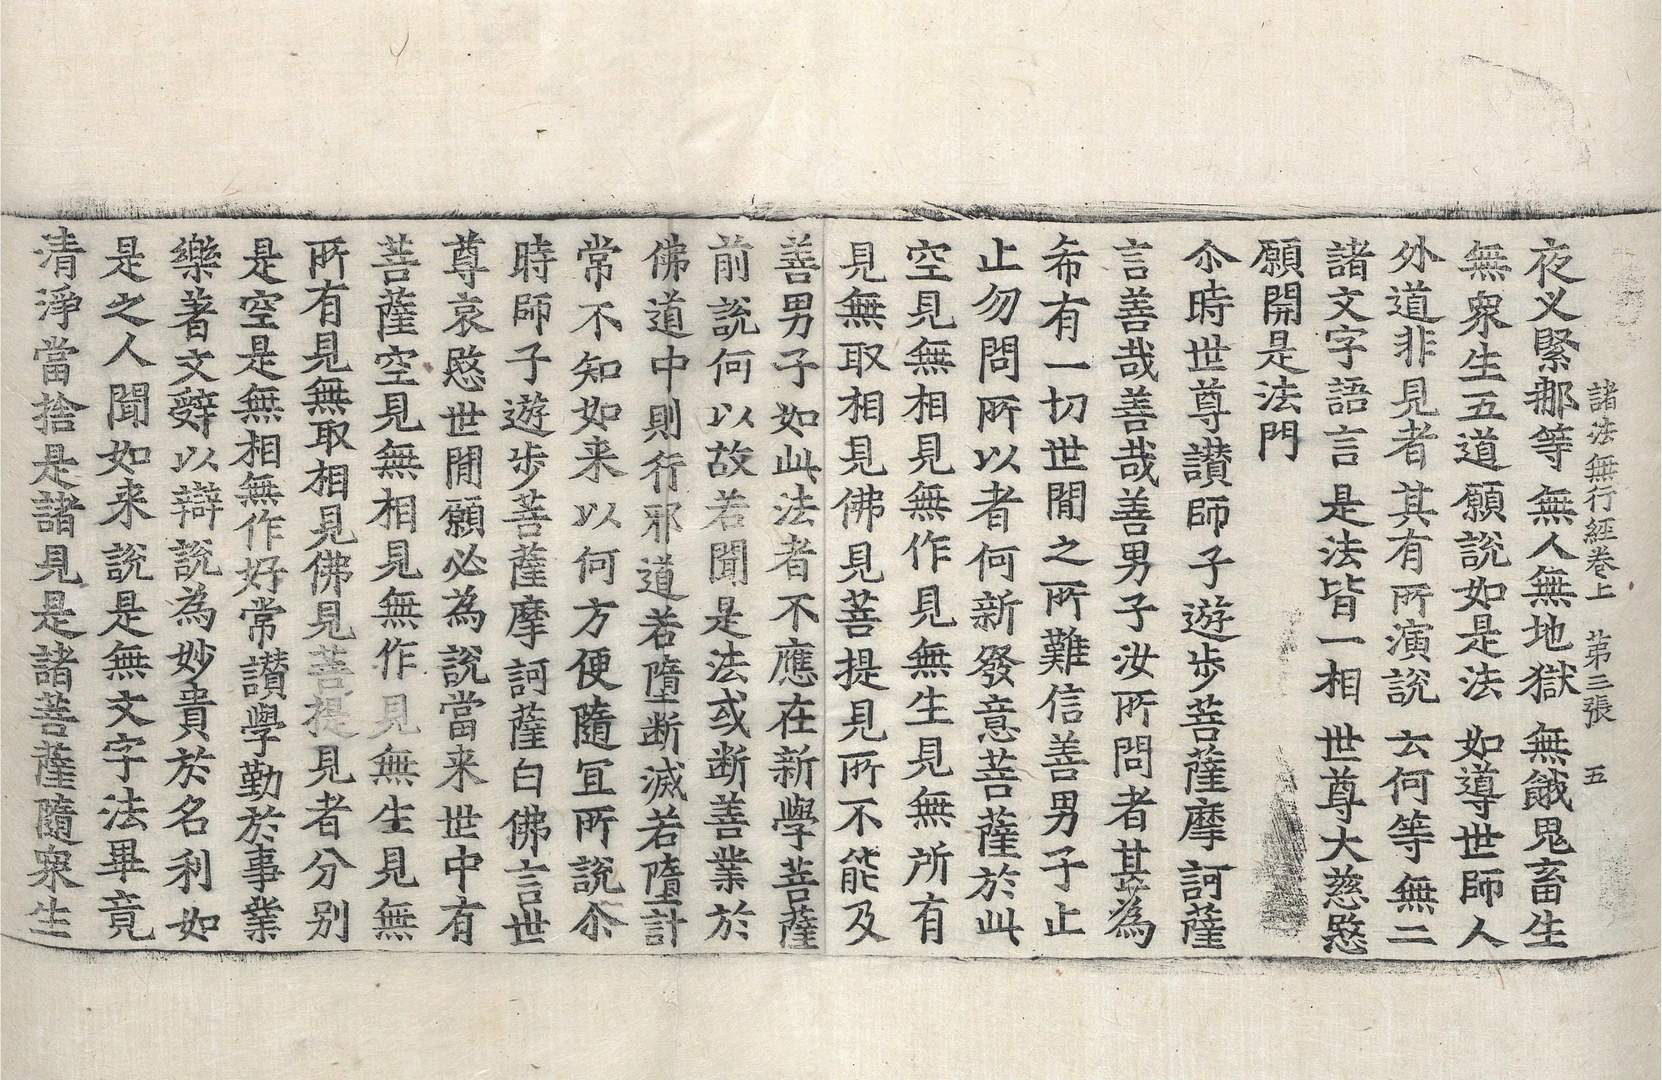 諸法無行經卷上　苐三張　五
夜叉緊那等　無人無地獄　無餓鬼畜生
無衆生五道　願說如是法　如導世師人
外道非見者　其有所演說　云何等無二
諸文字語言　是法皆一相　世尊大慈愍
願開是法門
尒時世尊讃師子遊步菩薩摩訶薩
言善哉善哉善男子汝所問者甚為
希有一切世閒之所難信善男子止
止勿問所以者何新發意菩薩於此
空見無相見無作見無生見無所有
見無取相見佛見菩提見所不能及
善男子如此法者不應在新學菩薩
前說何以故若聞是法或断善業於
佛道中則行邪道若墮断滅若墮計
常不知如来以何方便隨宜所說尒
時師子遊步菩薩摩訶薩白佛言世
尊哀愍世閒願必為說當来世中有
菩薩空見無相見無作見無生見無
所有見無取相見佛見菩提見者分别
是空是無相無作好常讃學勤於事業
樂著文辭以辯說為妙貴於名利如
是之人聞如来說是無文字法畢竟
清淨當捨是諸見是諸菩薩隨衆生